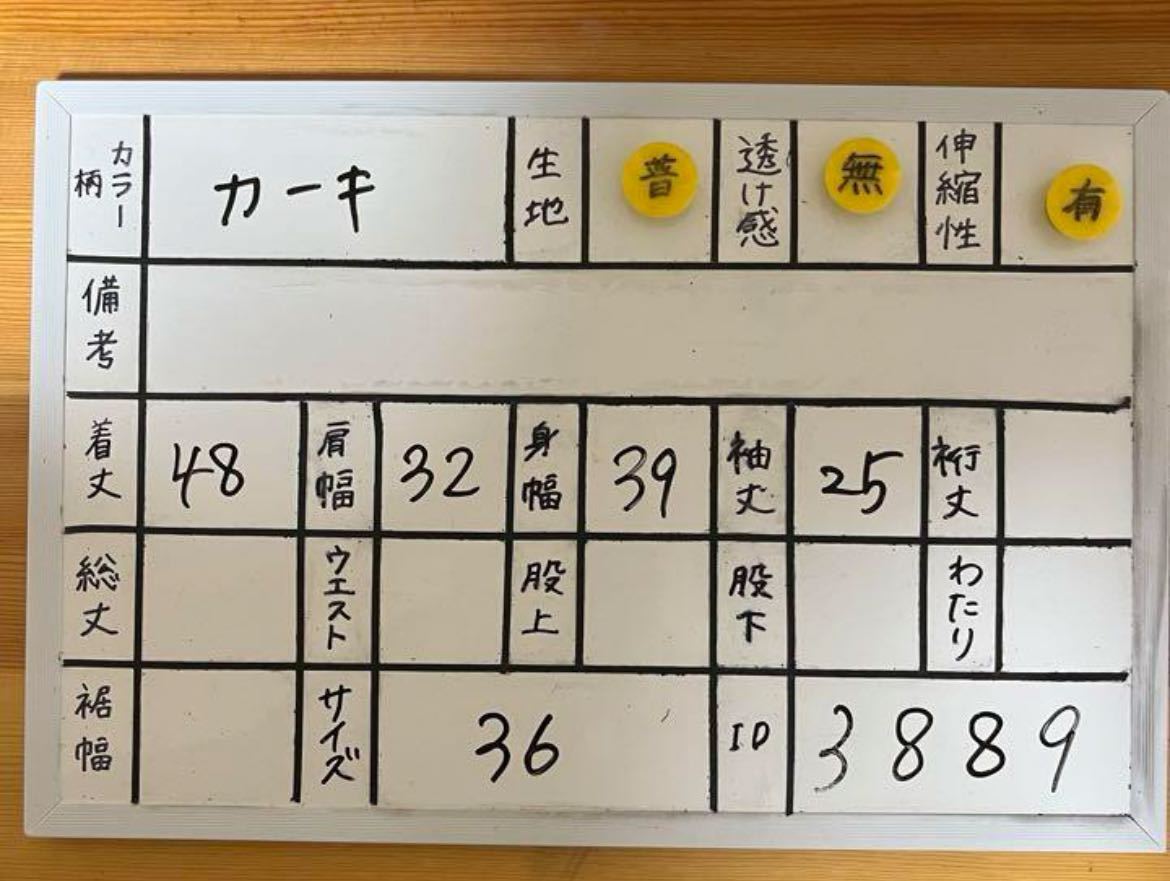 カラー 柄 カーキ 生地 普 透け感 無 伸縮性 有
備考
着丈 48 肩幅 32 身幅 39 袖丈 25 裄丈
総丈 ウエスト 股上 股下 わたり
裾幅 サイズ 36 ID 3889